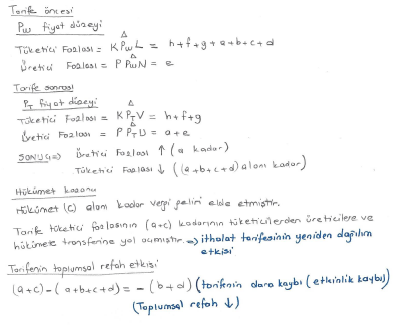 Tarife öncesi
Pw fiyat düzeyi
Tüketici Fazlası = KPwL = h+f+g+a+b+c+d
Üretici Fazlası = PPwN = e
Tarife sonrası
PT fiyat düzeyi
Tüketici Fazlası = KPTV = h+f+g
Üretici Fazlası = PPTU = a+e
SONUÇ => Üretici Fazlası ↑ (a kadar)
Tüketici Fazlası ↓ ((a+b+c+d) alanı kadar)
Hükümet kazancı
Hükümet (c) alanı kadar vergi geliri elde etmiştir.
Tarife tüketici fazlasının (a+c) kadarının tüketicilerden üreticilere ve
hükümete transferine yol açmıştır. => ithalat tarifesinin yeniden dağılım
etkisi
Tarifenin toplumsal refah etkisi
(a+c) - (a+b+c+d) = - (b+d) (tarifenin dara kaybı (etkinlik kaybı)
(Toplumsal refah ↓)